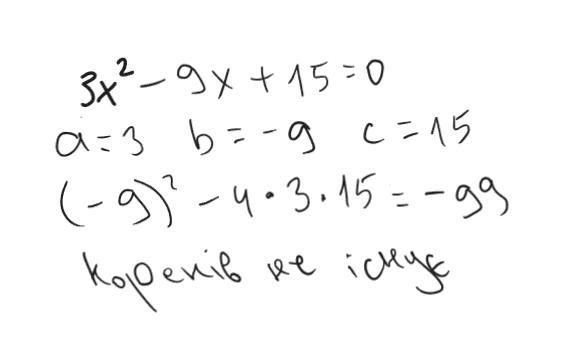 3x² - 9x + 15 = 0
a = 3 b = -9 c = 15
(-9)² - 4 · 3 · 15 = -99
коренів не існує